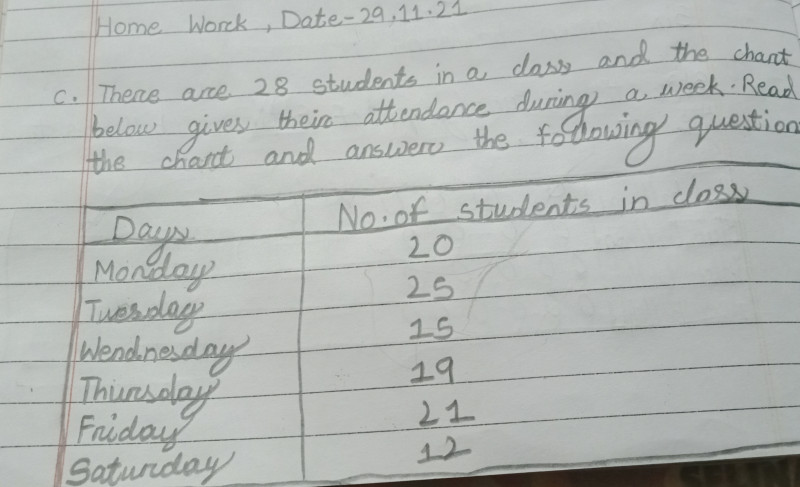 Home Worck, Date-29.11.21
c. There are 28 students in a class and the chart
below gives their attendance during a week. Read
the chart and answer the following question
Days No. of students in class
Monday 20
Tuesday 25
Wendnesday 15
Thursday 19
Friday 21
Saturday 12